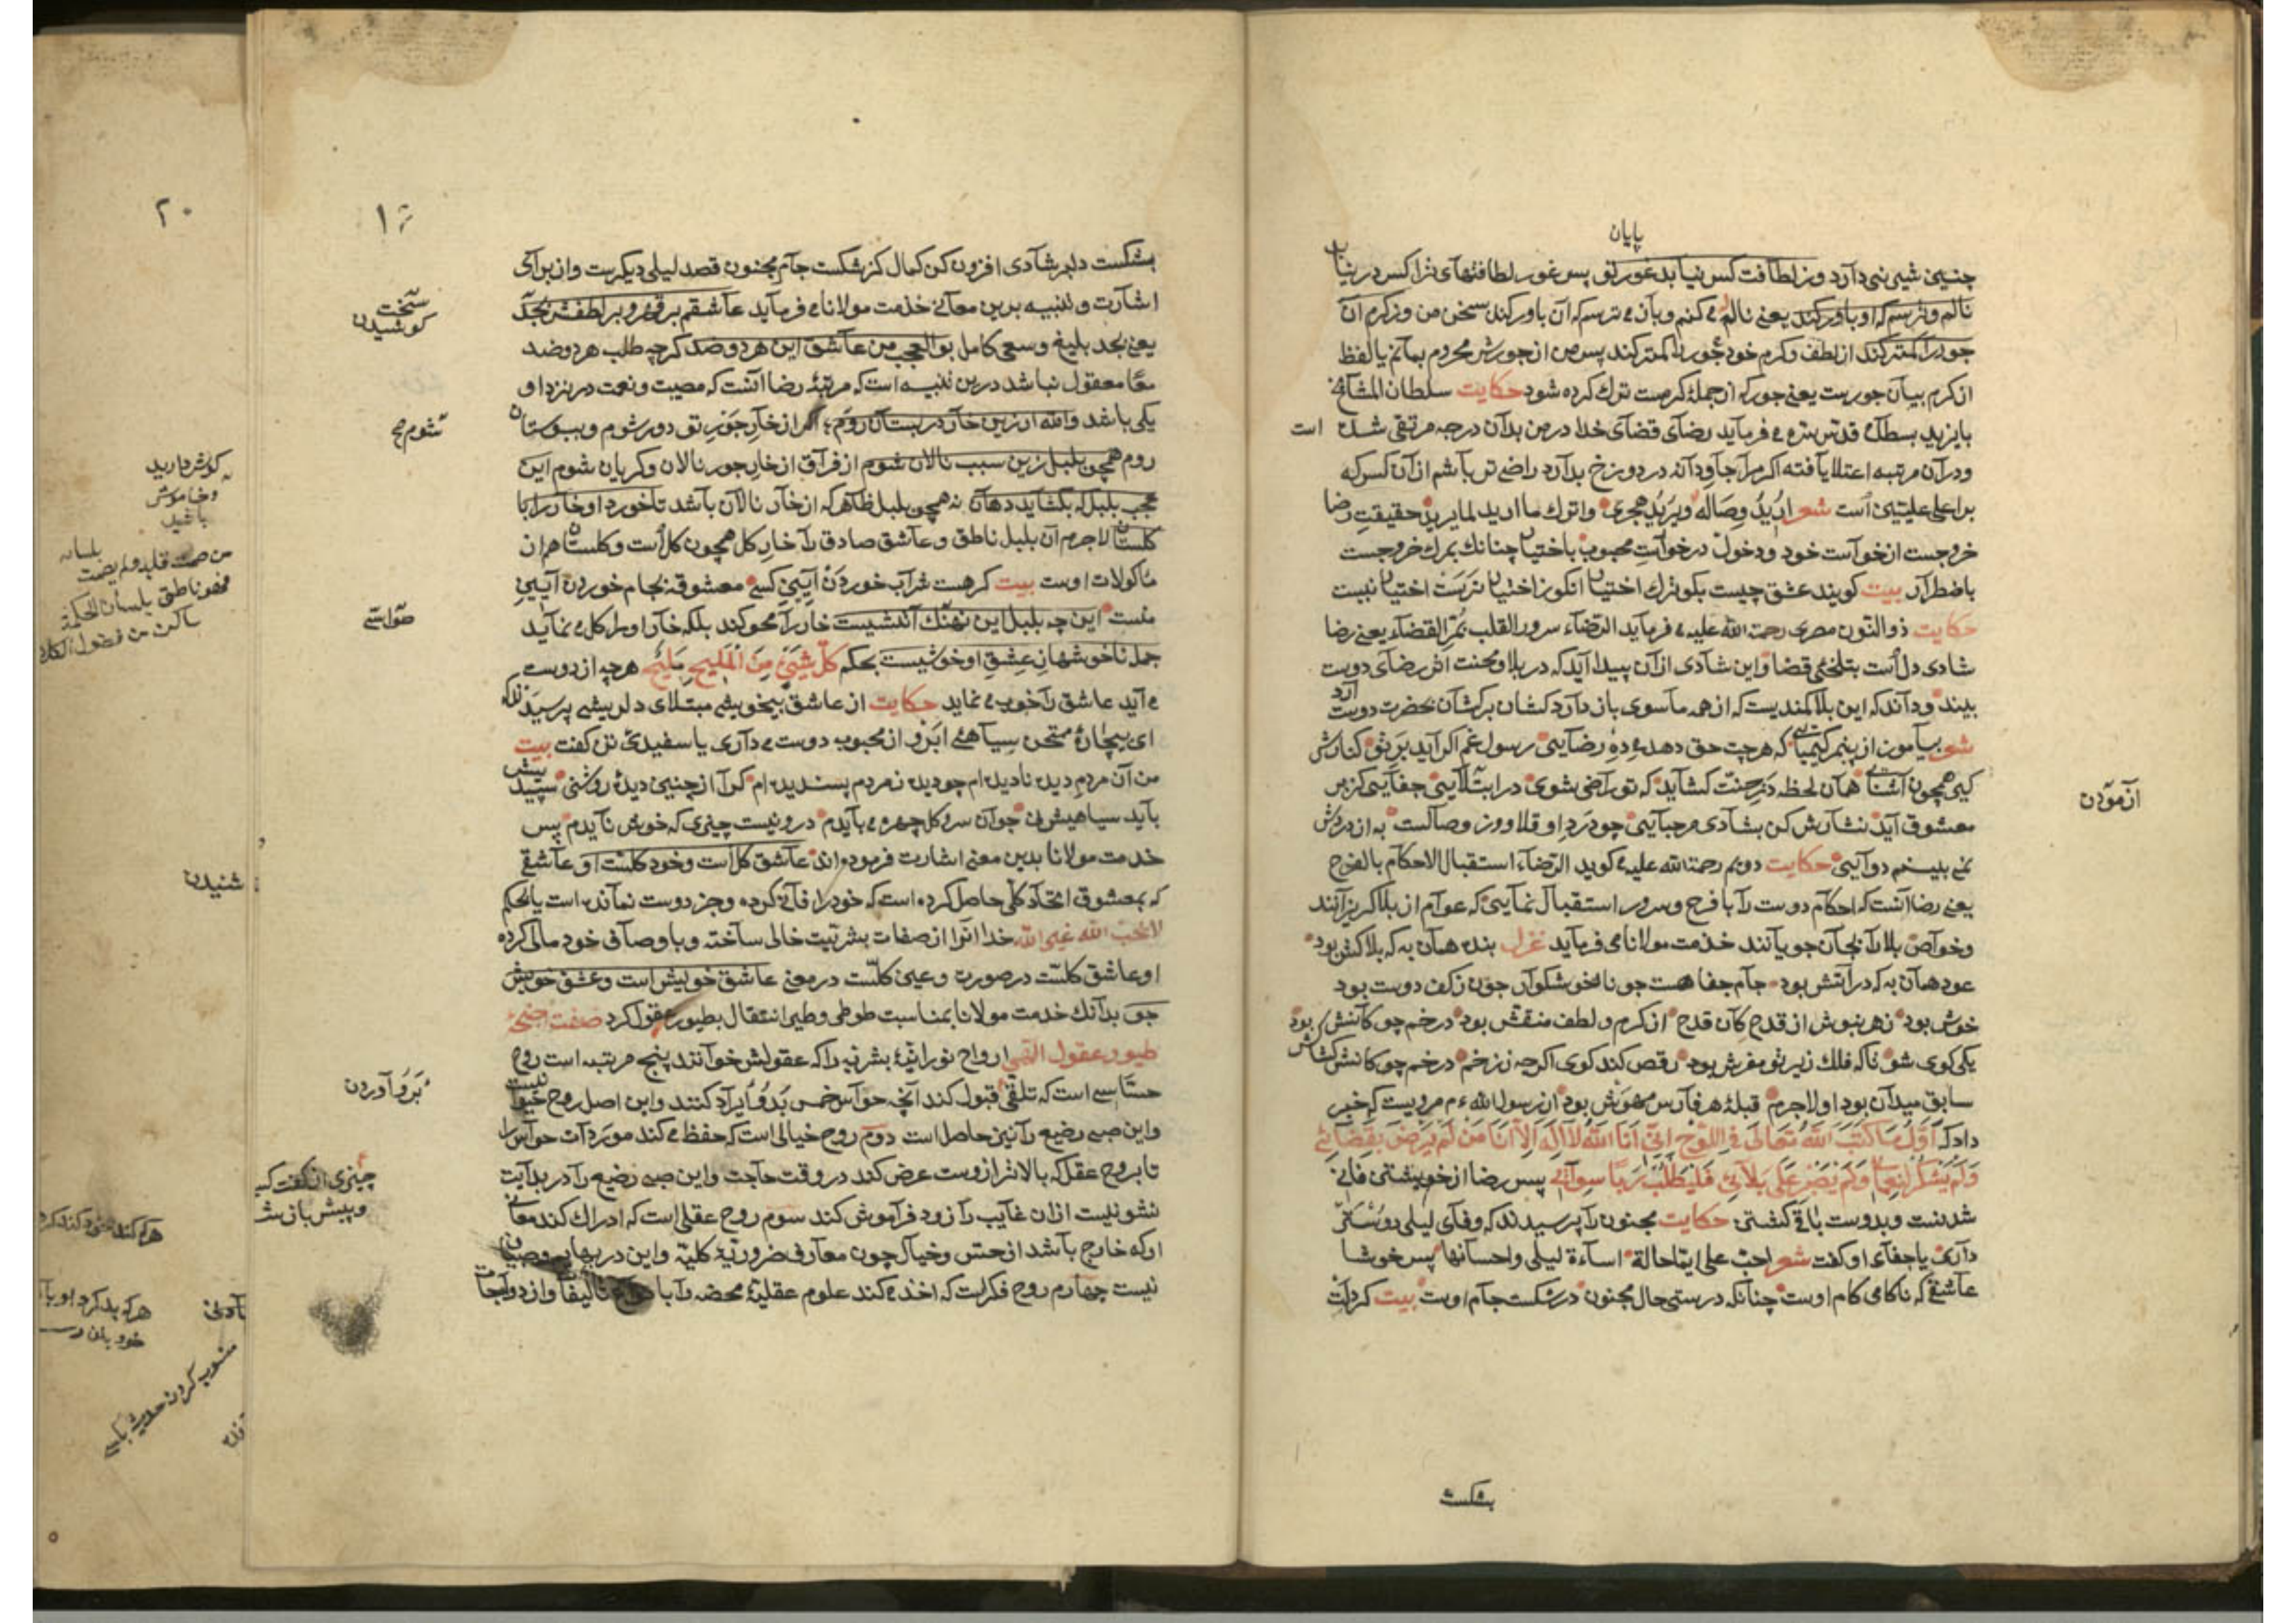 پایان
چنین شیرینی دارد وز لطافت کس نیابد غور تو پس غور لطافتهای ترا کس در نیابد
نالم وترسم که او باور کند یعنی ناله می کنم وبآن می ترسم که آن باور کند سخن من وز کرم آن
جور را کمتر کند از لطف وکرم خود جور را کمتر کند پس من از جورش محروم بمانم یا لفظ
از کرم بیان جورست یعنی جور که از جملهٔ کرمست ترک کرده شود حکایت سلطان المشآیخ
بایزید بسطامی قدس سره می فرماید رضآی قضآی خدا در من بدآن درجه مرتقی شده است
ودرآن مرتبه اعتلا یافته اکر مرا جاودآنه در دوزخ بدارد راضی تر باشم از آن کس که
براعلی علیین است شعر ارید وصاله ویرید هجری واترك ما ارید لما یرید حقیقت رضا
خروجست از خوآست خود ودخول در خوآست محبوب باختیار چنانك بمرك خروجست
باضطرار بیت کویند عشق چیست بکو ترك اختیار آنکو ز اختیار نرست اختیار نیست
حکایت ذو النون مصری رحمة الله علیه می فرماید الرضآء سرور القلب بمر القضآء یعنی رضا
شادی دل است بتلخی قضا واین شادی از آن پیدا آید که در بلا ومحنت اثر رضآی دوست
بیند وداند که این بلا کمندیست که از همه ماسوی باز دارد کشان برکشان بحضرت دوست آرد
شعر بیاموز از پیمبر کیمیایی که هرچت حق دهد می ده رضایی رسول غم اکر آید بر تو کنارش
کیر همچون آشنایی همان لحظه در جنت کشاید که تو راضی شوی در ابتلایی جفایی کز بر
معشوق آید نثارش کن بشادی مرحبایی چو درد او قلاووز وصالست به از دردش
نمی بینم دوایی حکایت رویم رحمة الله علیه می کوید الرضآء استقبال الاحکام بالفرح
یعنی رضا آنست که احکام دوست را با فرح وسرور استقبال نمایی که عوام از بلا کریزانند
وخواص بلا را بجان جویانند خدمت مولانا می فرماید غزل بنده همان به که بلاکش بود
عود همان به که در آتش بود جام جفا هست چو ناخوشکوار چون ز کف دوست بود
خوش بود زهر بنوش از قدح کان قدح از کرم ولطف منقش بود در خم چوکانش بود
یکی کوی شو تا که فلك زیر تو مفرش بود رقص کند کوی اکرچه ز زخم در خم چوکانش کشاکش
سابق میدان بود او لاجرم قبلهٔ هر فارس مهوش بود از رسول الله ءم مرویست که خبر
داد که اول ما کتب الله تعالی فی اللوح انی انا الله لا اله الا انا من لم یرض بقضائی
ولم یشکر نعمائی ولم یصبر علی بلائی فلیطلب ربا سوائی پس رضا از خویشتن فانی
شدنست وبدوست باقی کشتن حکایت مجنون را پرسیدند که وفآی لیلی دوستتر
داری یا جفآی او کفت شعر احب علی ایما حالة اساءة لیلی واحسانها پس خوشا
عاشقی که ناکامی کام اوست چنانکه درستی حال مجنون در شکست جام اوست بیت کر دلت
بشکست
ازمودن
۱۹
بشکست دلبر شادی افزون کن کمال کز شکست جام مجنون قصد لیلی دیکرست واز برآی
اشارت وتنبیه برین معانی خدمت مولانا می فرماید عاشقم بر قهر وبر لطفش بجد
یعنی بجد بلیغ وسعی کامل بو العجب من عاشق این هر دو ضد کرچه طلب هر دو ضد
معا معقول نباشد درین تنبیه است که مرتبهٔ رضا آنست که مصیبت ونعمت در نزد او
یکی باشد والله ار زین خار در بستان روم اکر از خار جور تو دور شوم وببوستان
روم همچو بلبل زین سبب نالان شوم از فراق از خار جور نالان وکریان شوم این
عجب بلبل که بکشاید دهان نه همچو بلبل ظاهر که از خار نالان باشد تا خورد او خار را با
کلستان لاجرم آن بلبل ناطق وعاشق صادق را خار کل همچون کل است وکلستان هم از
مأکولات اوست بیت کر هست شراب خوردن آیین کسی معشوقه بجام خوردن آیین
منست این چه بلبل این نهنك آتشیست خار را محو کند بلکه خار او را کل می نماید
جمله ناخوشها ز عشق او خوشیست بحکم کل شیئ من الملیح ملیح هرچه از دوست
می آید عاشق را خوب می نماید حکایت از عاشق بیخویشی مبتلای دلریشی پرسیدند که
ای بیچارهٔ ممتحن سیاهی ابرو از محبوب دوست می داری یا سفیدی تن کفت بیت
من آن مردم دیده نادیده ام چو دیده ز مردم پسندیده ام کرا از چنین دیدهٔ روشنی سپید
باید سیاهیش نی چو آن سرو کلچهره می بایدم درو نیست چیزی که خوش نایدم پس
خدمت مولانا بدین معنی اشارت فرموده اند عاشق کل است وخود کلست او عاشقی
که بمعشوق اتحاد کلی حاصل کرده است که خود را فانی کرده وجز دوست نمانده است یا بحکم
لا یحب الله غیر الله خدا او را از صفات بشریت خالی ساخته وبا وصاف خود مالی کرده
او عاشق کلست در صورت وعین کلست در معنی عاشق خویش است وعشق خویش
جو بدانك خدمت مولانا بمناسبت طوطی وطیر انتقال بطیور عقول کرد صفت اجنحهٔ
طیور عقول الهی ارواح نورانیهٔ بشریه را که عقولش خوانند پنج مرتبه است روح
حساسی است که تلقی وقبول کند آنچه حواس خمس بدو ایراد کنند واین اصل روح حیوانیست
واین صبی رضیع را نیز حاصل است دوم روح خیالی است که حفظ می کند موردات حواس را
تا بروح عقل که بالاتر ازوست عرض کند در وقت حاجت واین صبی رضیع را در بدایت
نشو نیست از آن غایب را زود فراموش کند سوم روح عقلی است که ادراك کند معانی
را که خارج باشد از حس وخیال چون معارف ضروریهٔ کلیه واین در بهایم وصبیان
نیست چهارم روح فکریست که اخذ می کند علوم عقلیهٔ محضه را با تألیفا وازدواجات
سخت
کوشیدن
شوم صح
بَرو آوردن
چیزی از کفت
وپیش باز
۲۰
کوش دارید
وخاموش
باشید
فهو ناطق بلسان الحکمة
ساکن من فضول الکلام
شنیدن
منسوب کردن حدیث بکسی